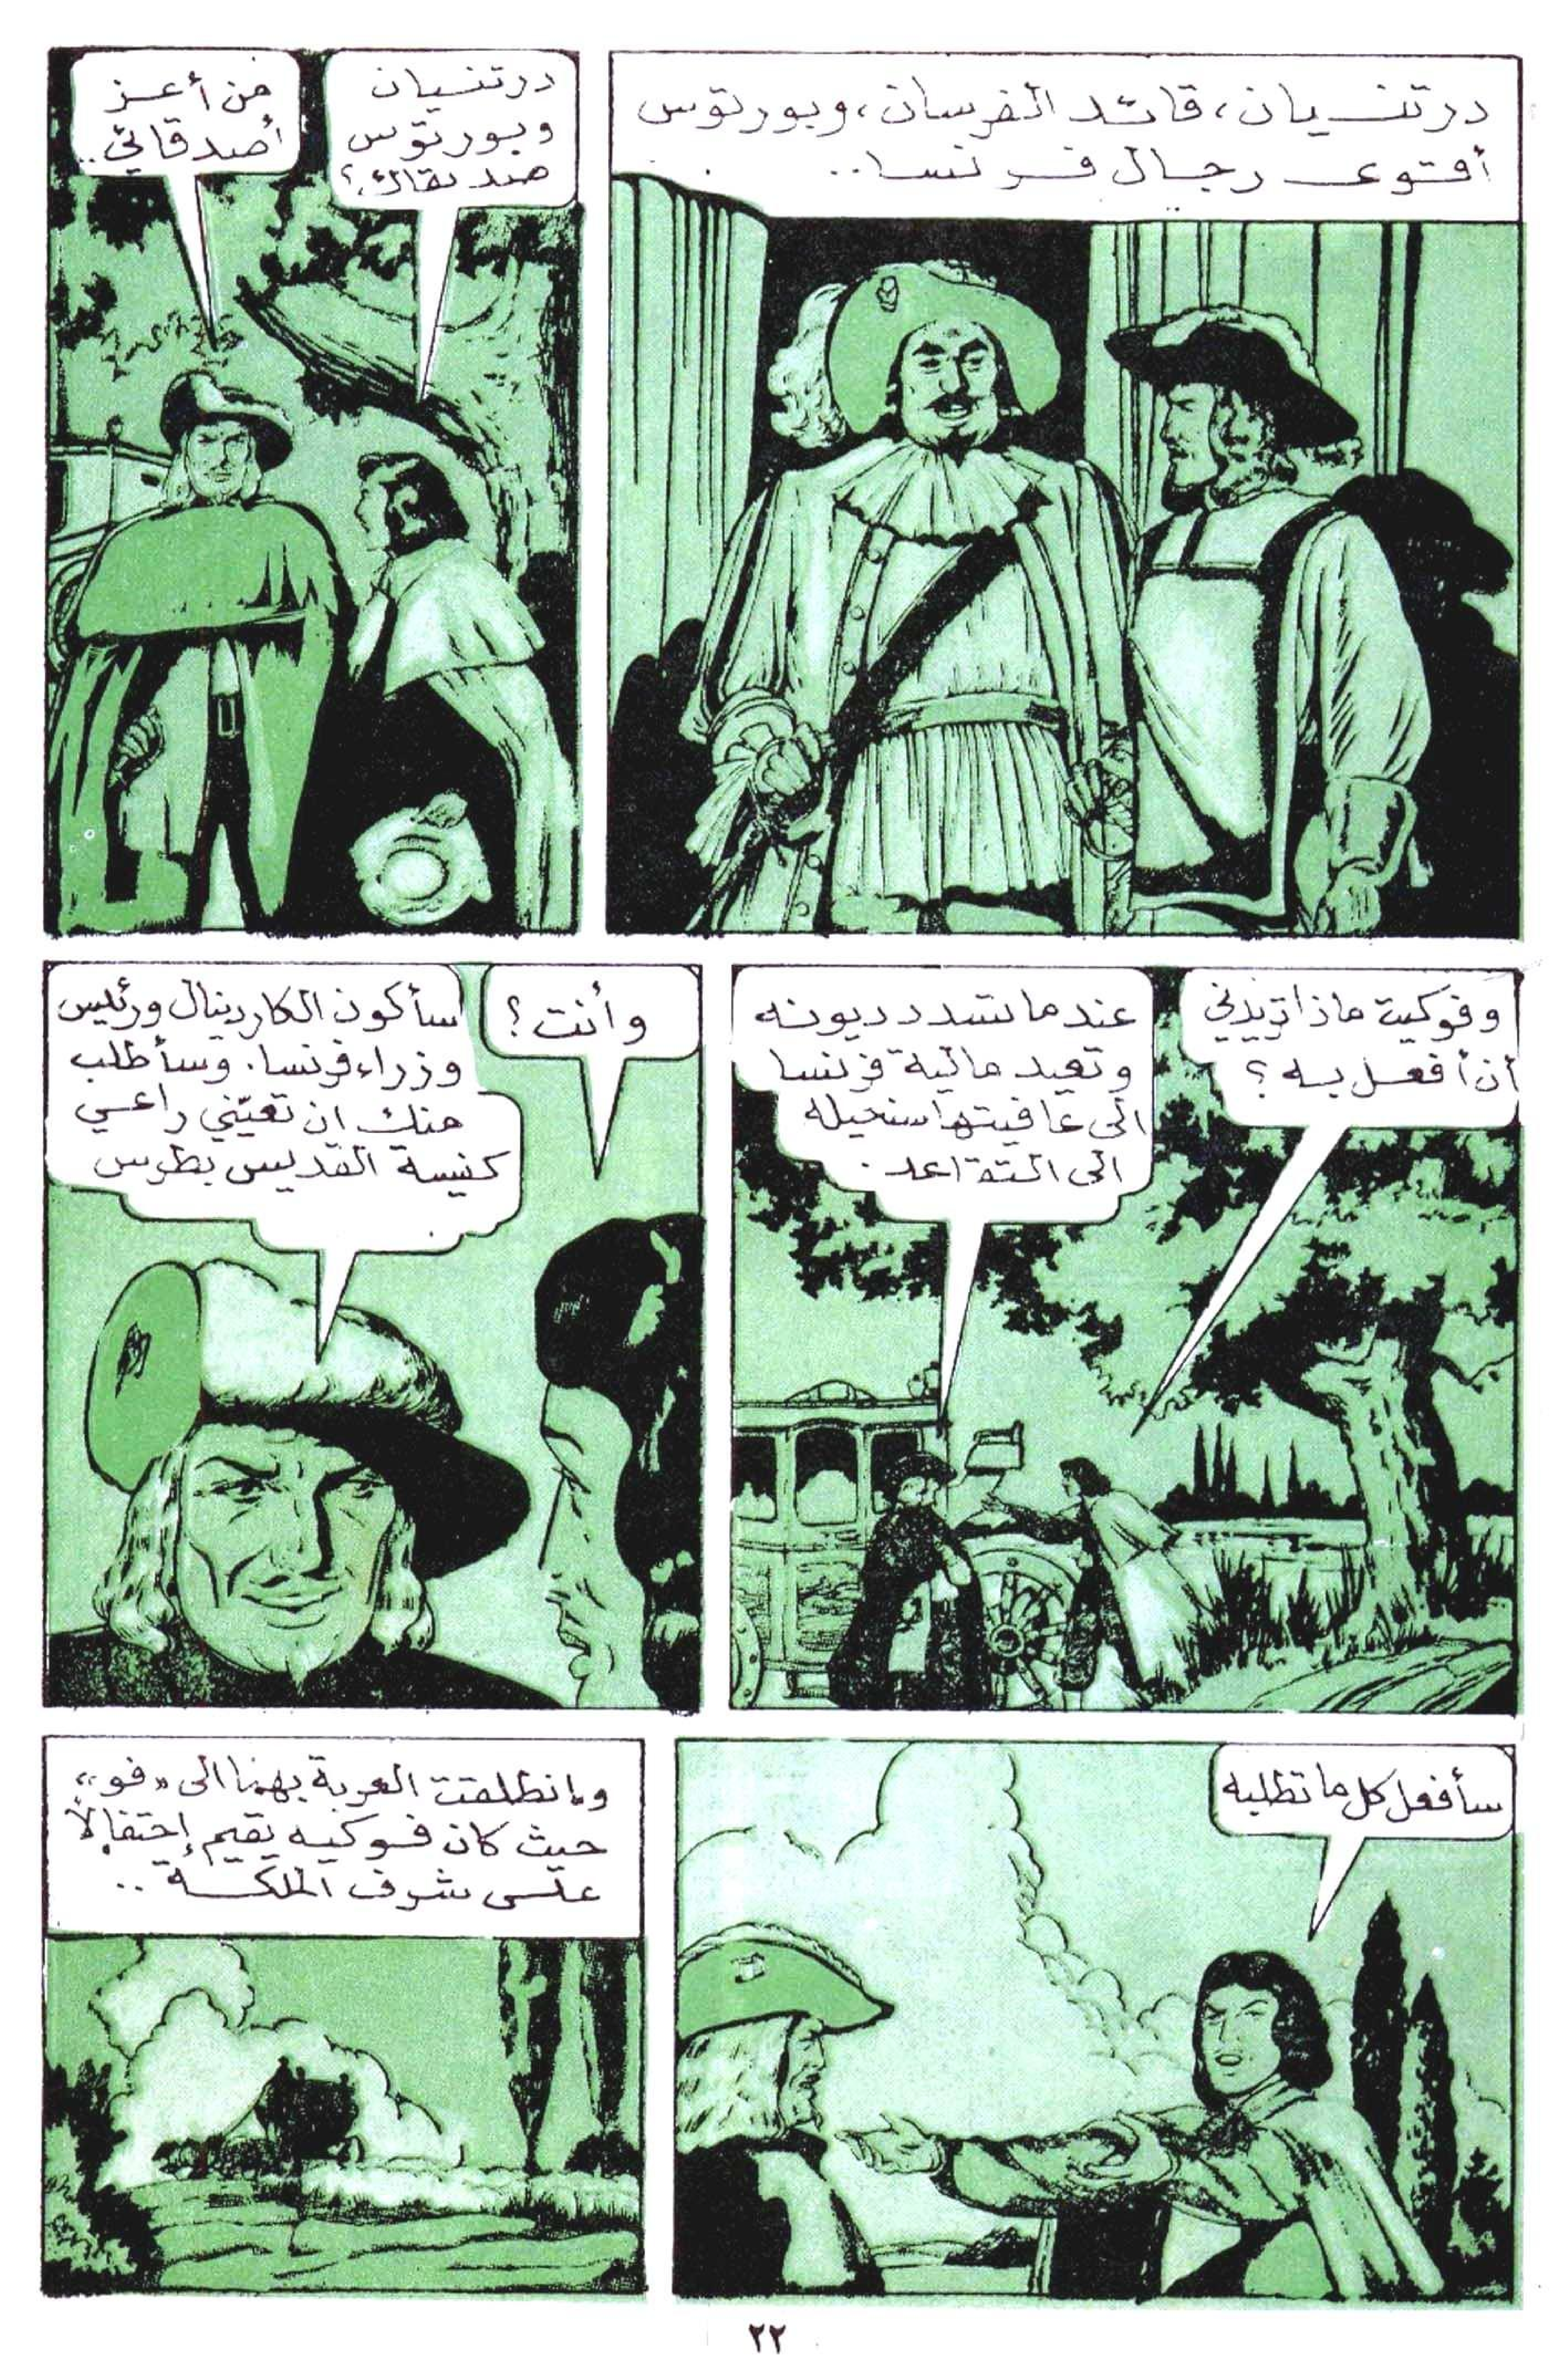 درتنسيان، قائد الفرسان، وبورتوس
أقوى رجال فرنسا..
درتنسيان
وبورتوس
صديقاك؟
من أعز
أصدقائي..
وفوكيت ماذا تريدني
أن أفعل به؟
عندما تسدد ديونه
وتعيد مالية فرنسا
الى عافيتها ستحيله
الى التقاعد.
وأنت؟
سأكون الكاردينال ورئيس
وزراء فرنسا. وسأطلب
منك ان تعيّني راعي
كنيسة القديس بطرس
سأفعل كل ما تطلبه
وانطلقت العربة بهما الى «فو»
حيث كان فوكيه يقيم إحتفالاً
على شرف الملكة..
٢٢